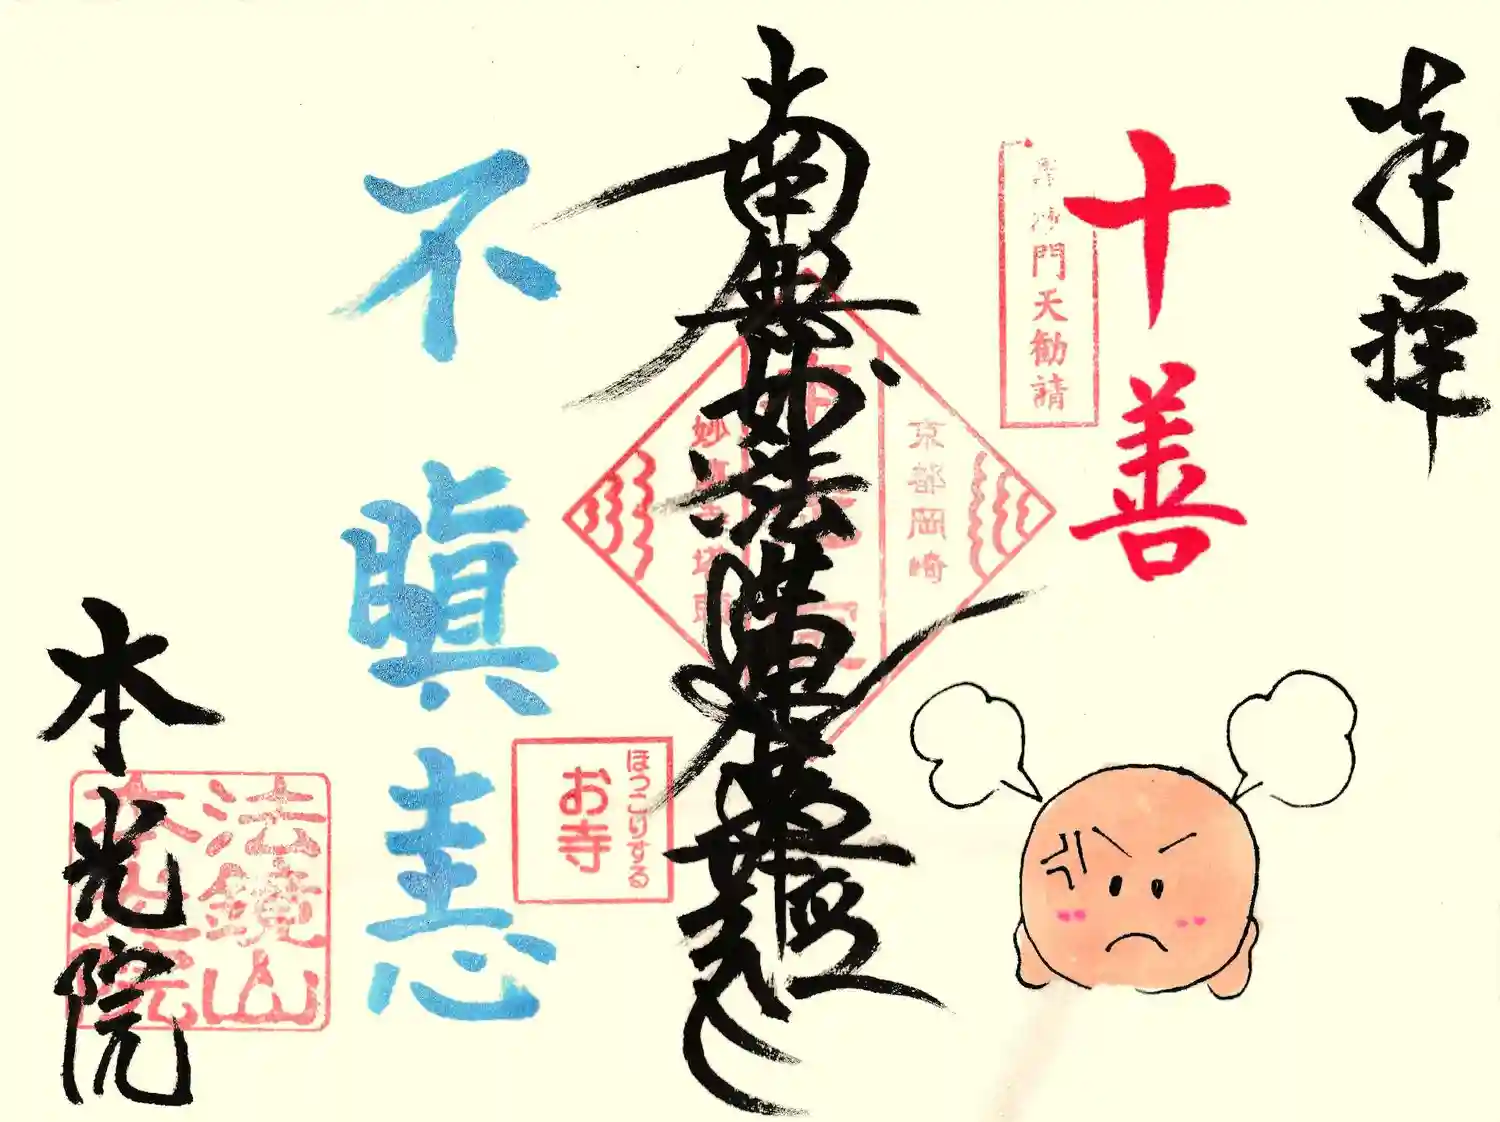 奉拝
十善
門天勧請
京都岡崎
南無妙法蓮華経
不瞋恚
ほっこりする
お寺
本光院
法鏡山
本光院